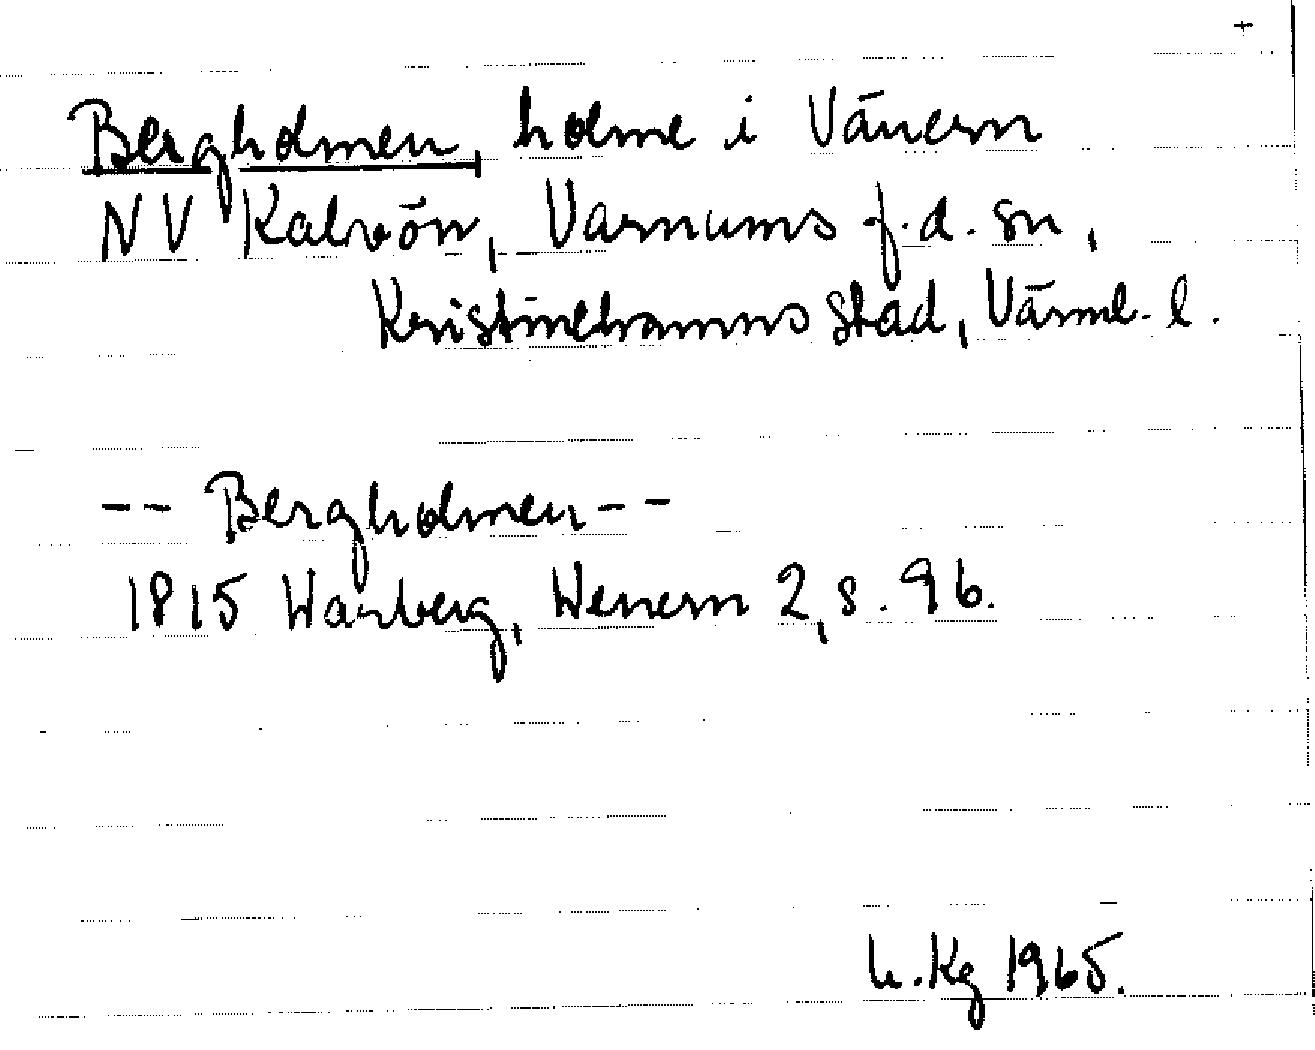 +
Bergholmen, holme i Vänern
NV Kalvön, Varnums f.d. sn,
Kristinehamns stad, Värml. l.
-- Bergholmen --
1815 Warberg, Wenern 2, s. 96.
U.Kg 1965.